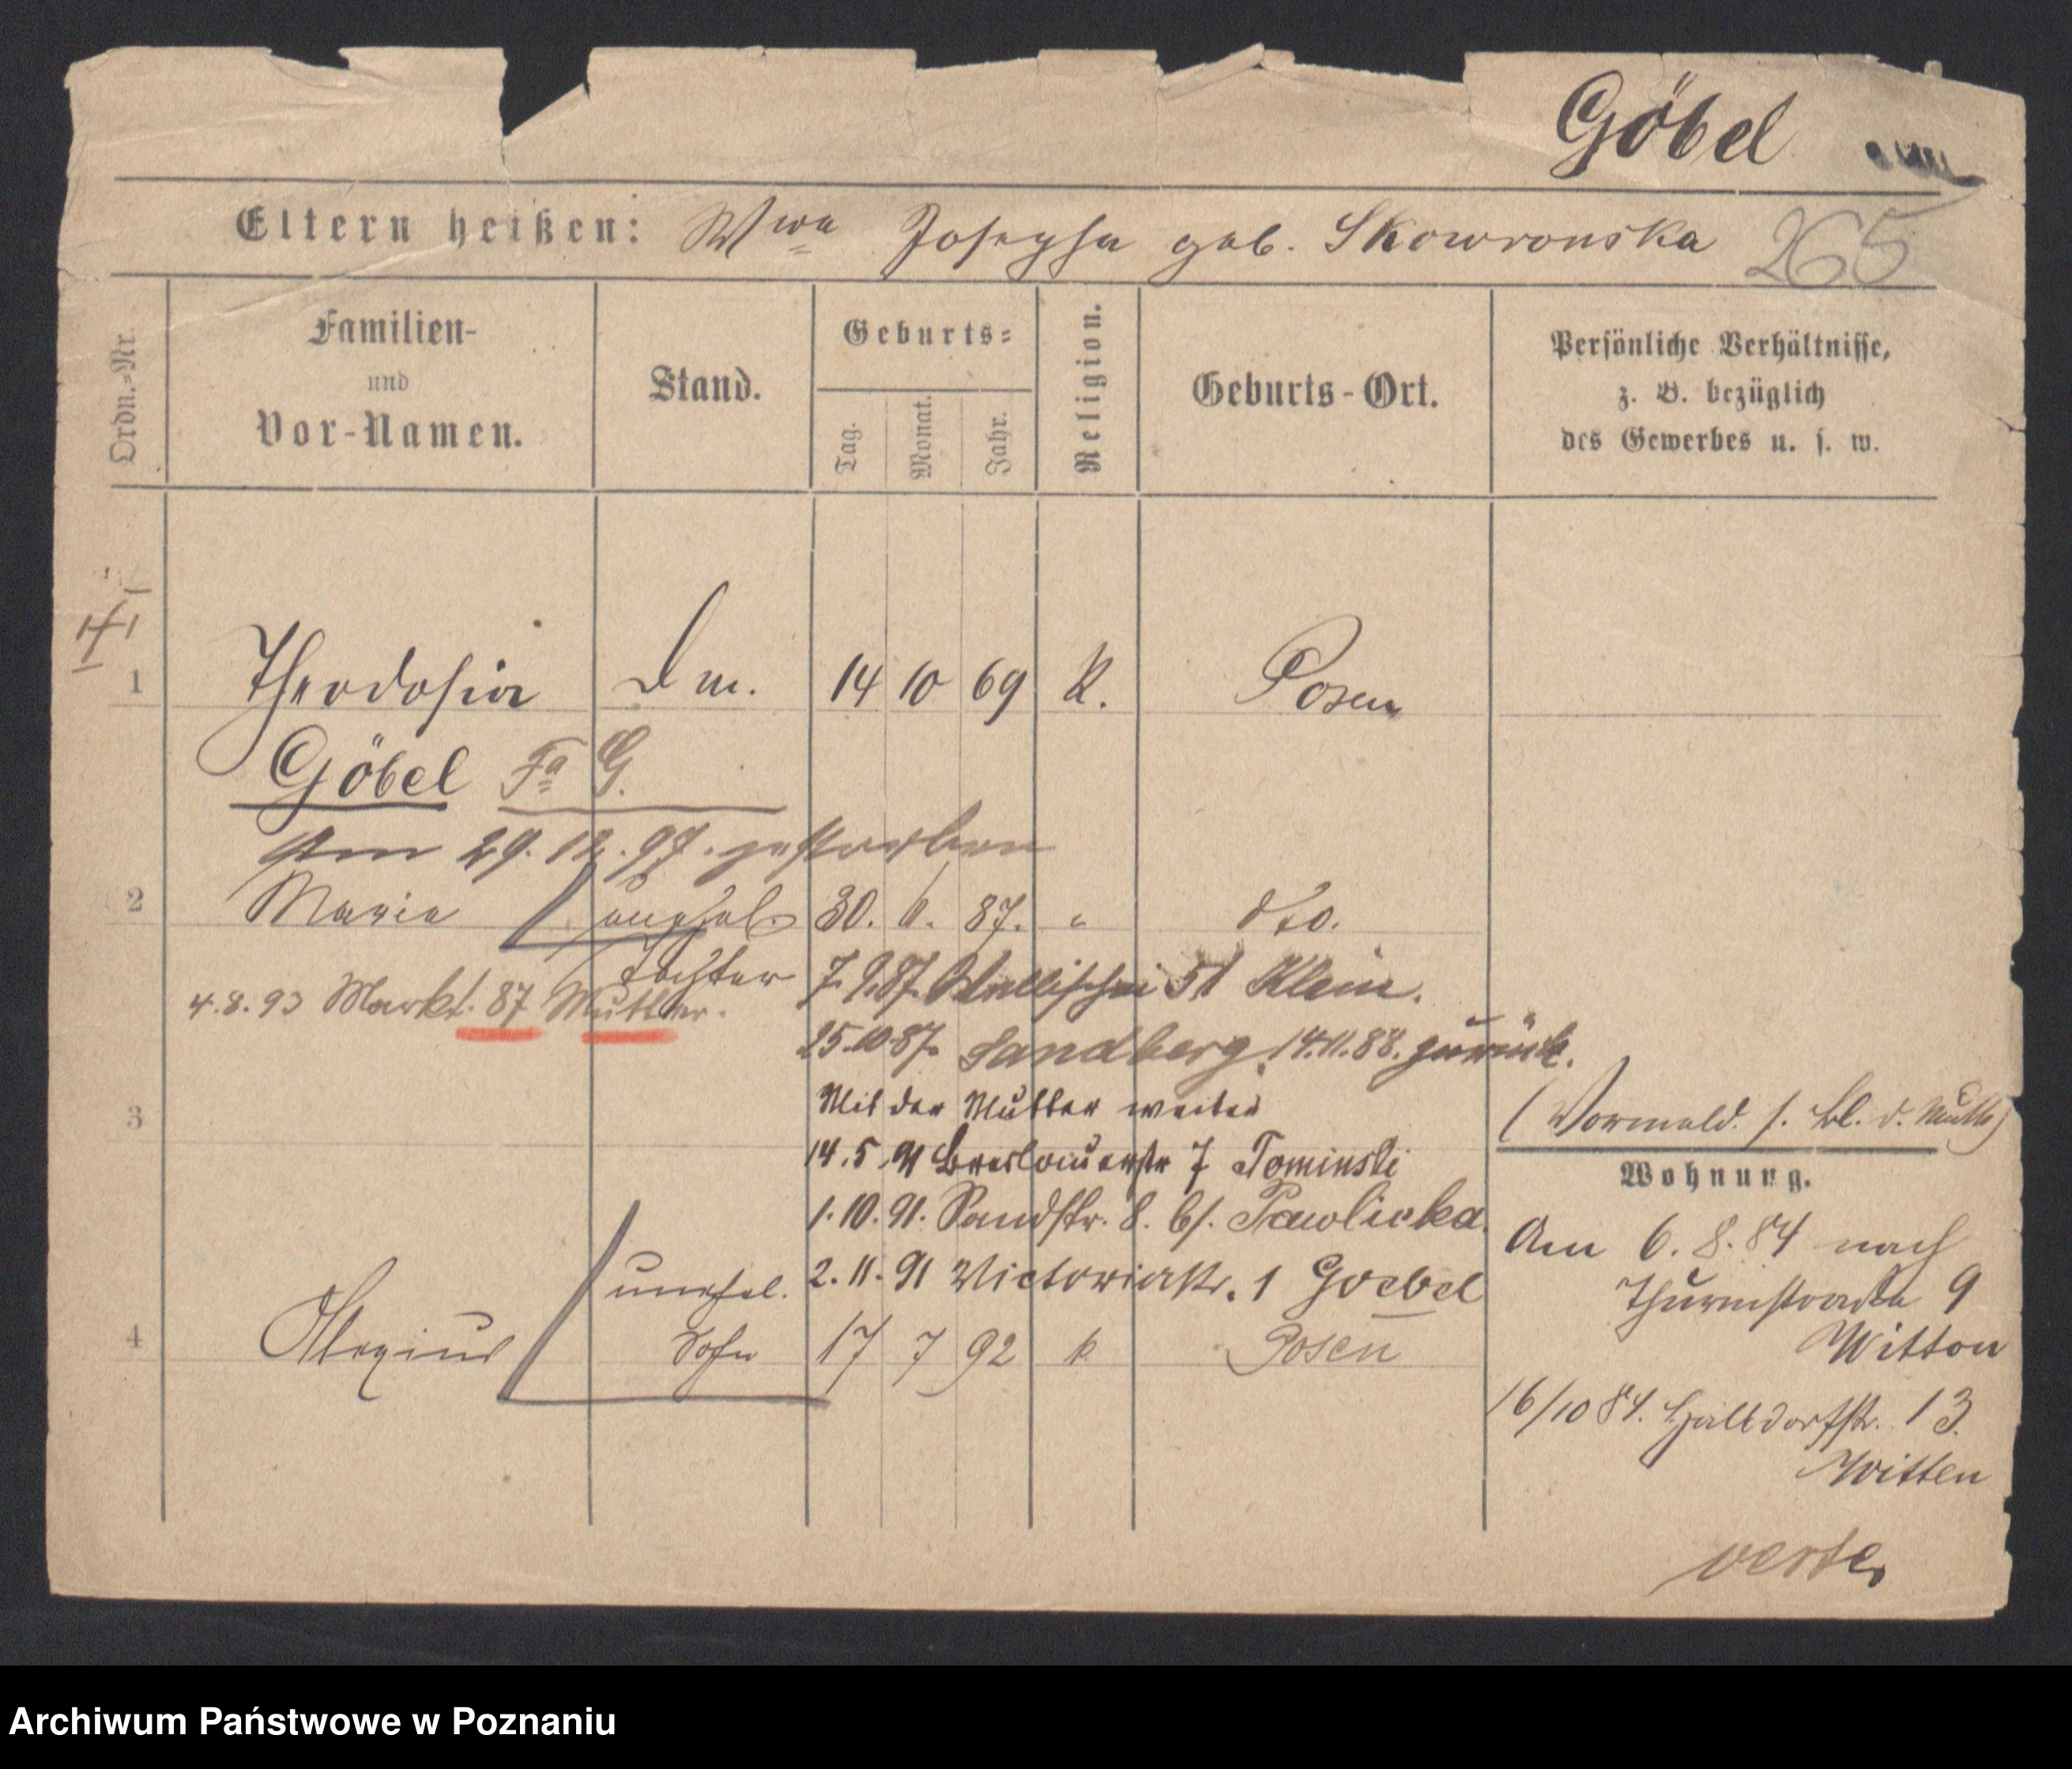 Göbel
Eltern heißen: Wwe Josepha geb. Skowronska 265
Ordn.-Nr.
Familien-
und
Vor-Namen.
Stand.
Geburts-
Tag.
Monat.
Jahr.
Religion.
Geburts-Ort.
Persönliche Verhältnisse,
z. B. bezüglich
des Gewerbes u. s. w.
1 Theodosia 14 10 69 K. Posen
Göbel Fa G.
Am 29.12.97. gestorben
2 Maria unehel. 30. 6. 87. " dto.
Tochter 7.9.87. 51 Klein.
4.8.93 Markt. 87 Mutter.
25.10.87. Sandberg, 14.11.88. zurück.
3 Mit der Mutter weiter
14.5.91 Breslauerstr 7 Tominski
1.10.91. Sandstr. 8. b/. Pawlicka.
2.11.91 Victoriastr. 1 Goebel
4 Alexius unehel.
Sohn 17 7 92 k Posen
(Vormuld. s. Bl. d. Mutter)
Wohnung.
Am 6.8.84 nach
Thurmstraße 9
Witten
16/10 84. 13.
Witten
verte
Archiwum Państwowe w Poznaniu